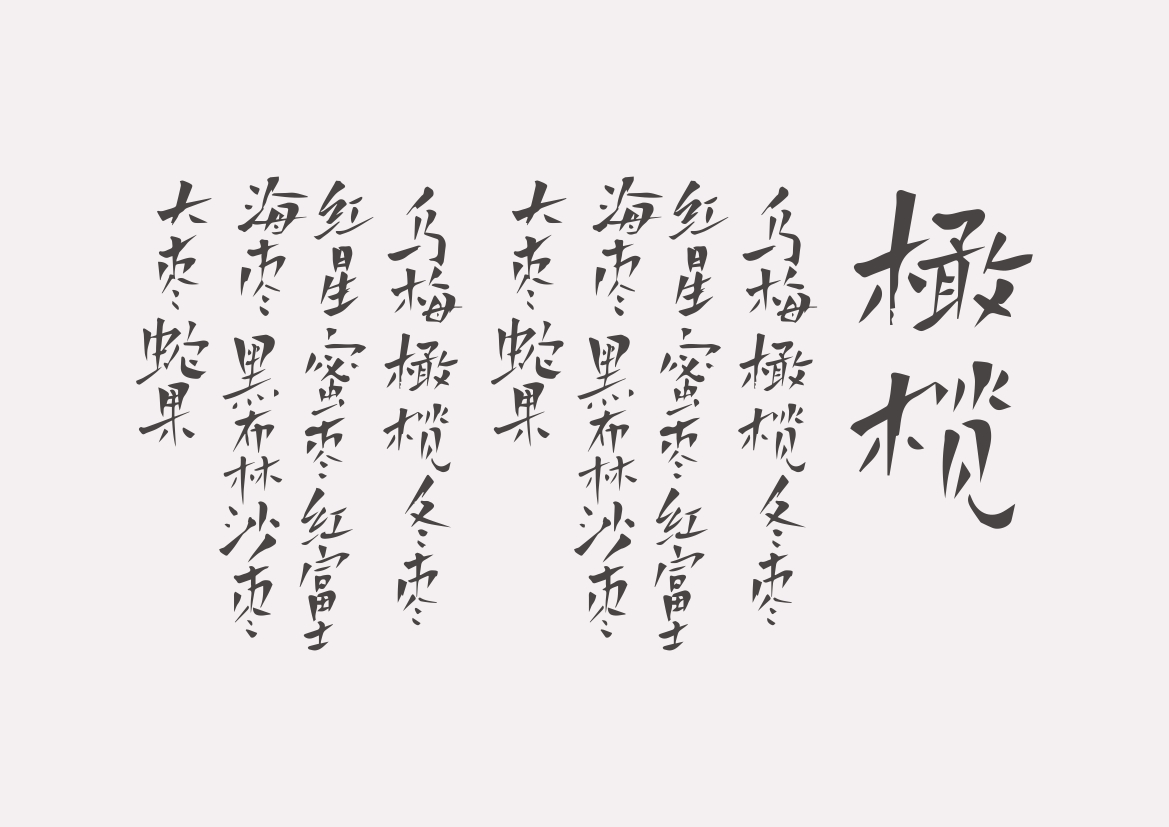 橄榄
乌梅 橄榄 冬枣
红星 蜜枣 红富士
海枣 黑布林 沙枣
大枣 蛇果
乌梅 橄榄 冬枣
红星 蜜枣 红富士
海枣 黑布林 沙枣
大枣 蛇果